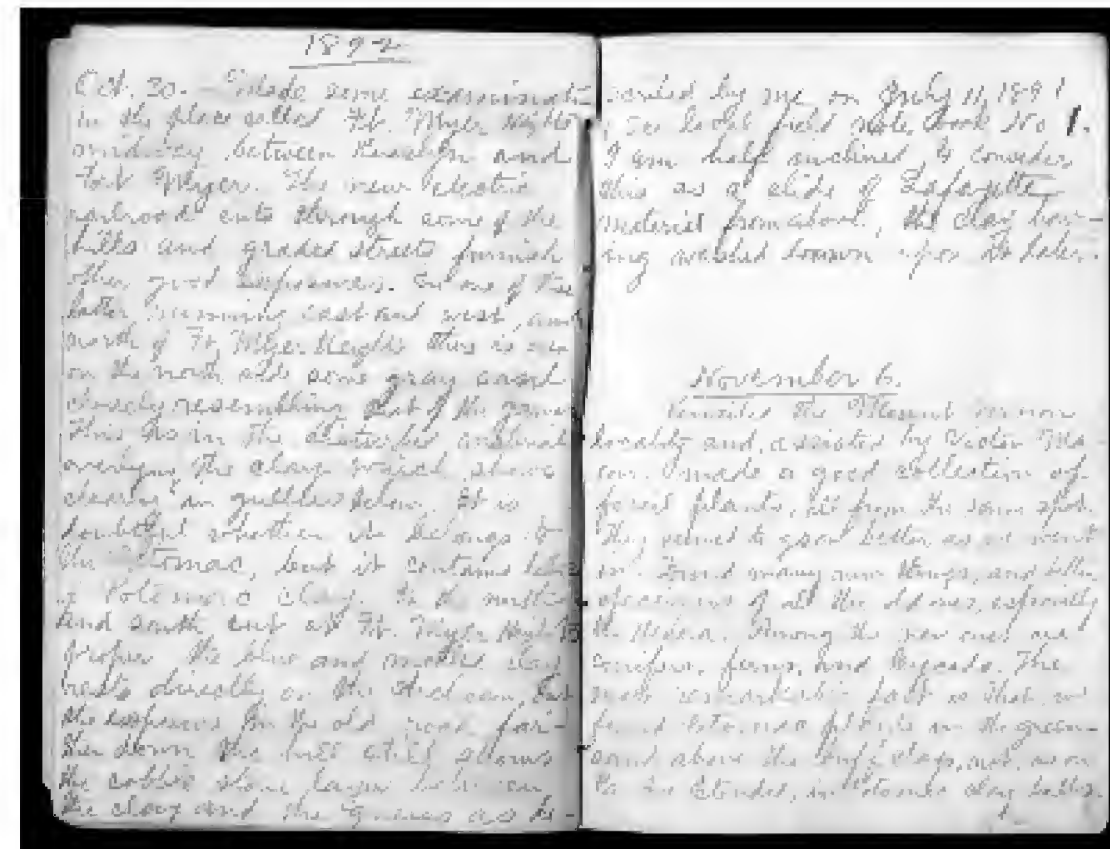 1892
Oct. 30. - Made some examinat
in the place called Ft. Myer Hights
midway between Rosslyn and
Fort Myer. The new electric
railroad cuts through some of the
hills and graded streets furnish
other good exposures. In one of the
latter running east and west, and
north of Ft. Myer Heights there is seen
on the north side some gray sand
closely resembling that of the
This is in the disturbed material
overlying the clay which shows
clearly in gullies below. It is
doubtful whether it belongs to
the Potomac, but it contains
Potomac clay. In the north
and south cut at Ft. Myer Hights
proper the blue and mottled clay
rests directly on the Archean, but
the exposures in the old road far-
ther down the hill still shows
the cobble stone layer between
the clay and the gneiss as de-
scribed by me on July 11, 1891
, see local field note book No 1.
I am half inclined to consider
this as a slide of Lafayette
material from above, the clay hav-
ing washed down upon it later.
November 6.
Revisited the Mount Vernon
locality and, assisted by Victor Ma-
son made a good collection of
fossil plants, all from the same spot.
They seemed to grow better as we went
in. Found many new things, and better
specimens of all the old ones, especially
the . Among the new ones are
conifers, ferns, and cycads. The
most remarkable fact is that we
found Potomac plants in the green-
sand above the clays, not, as on
, in Potomac clay